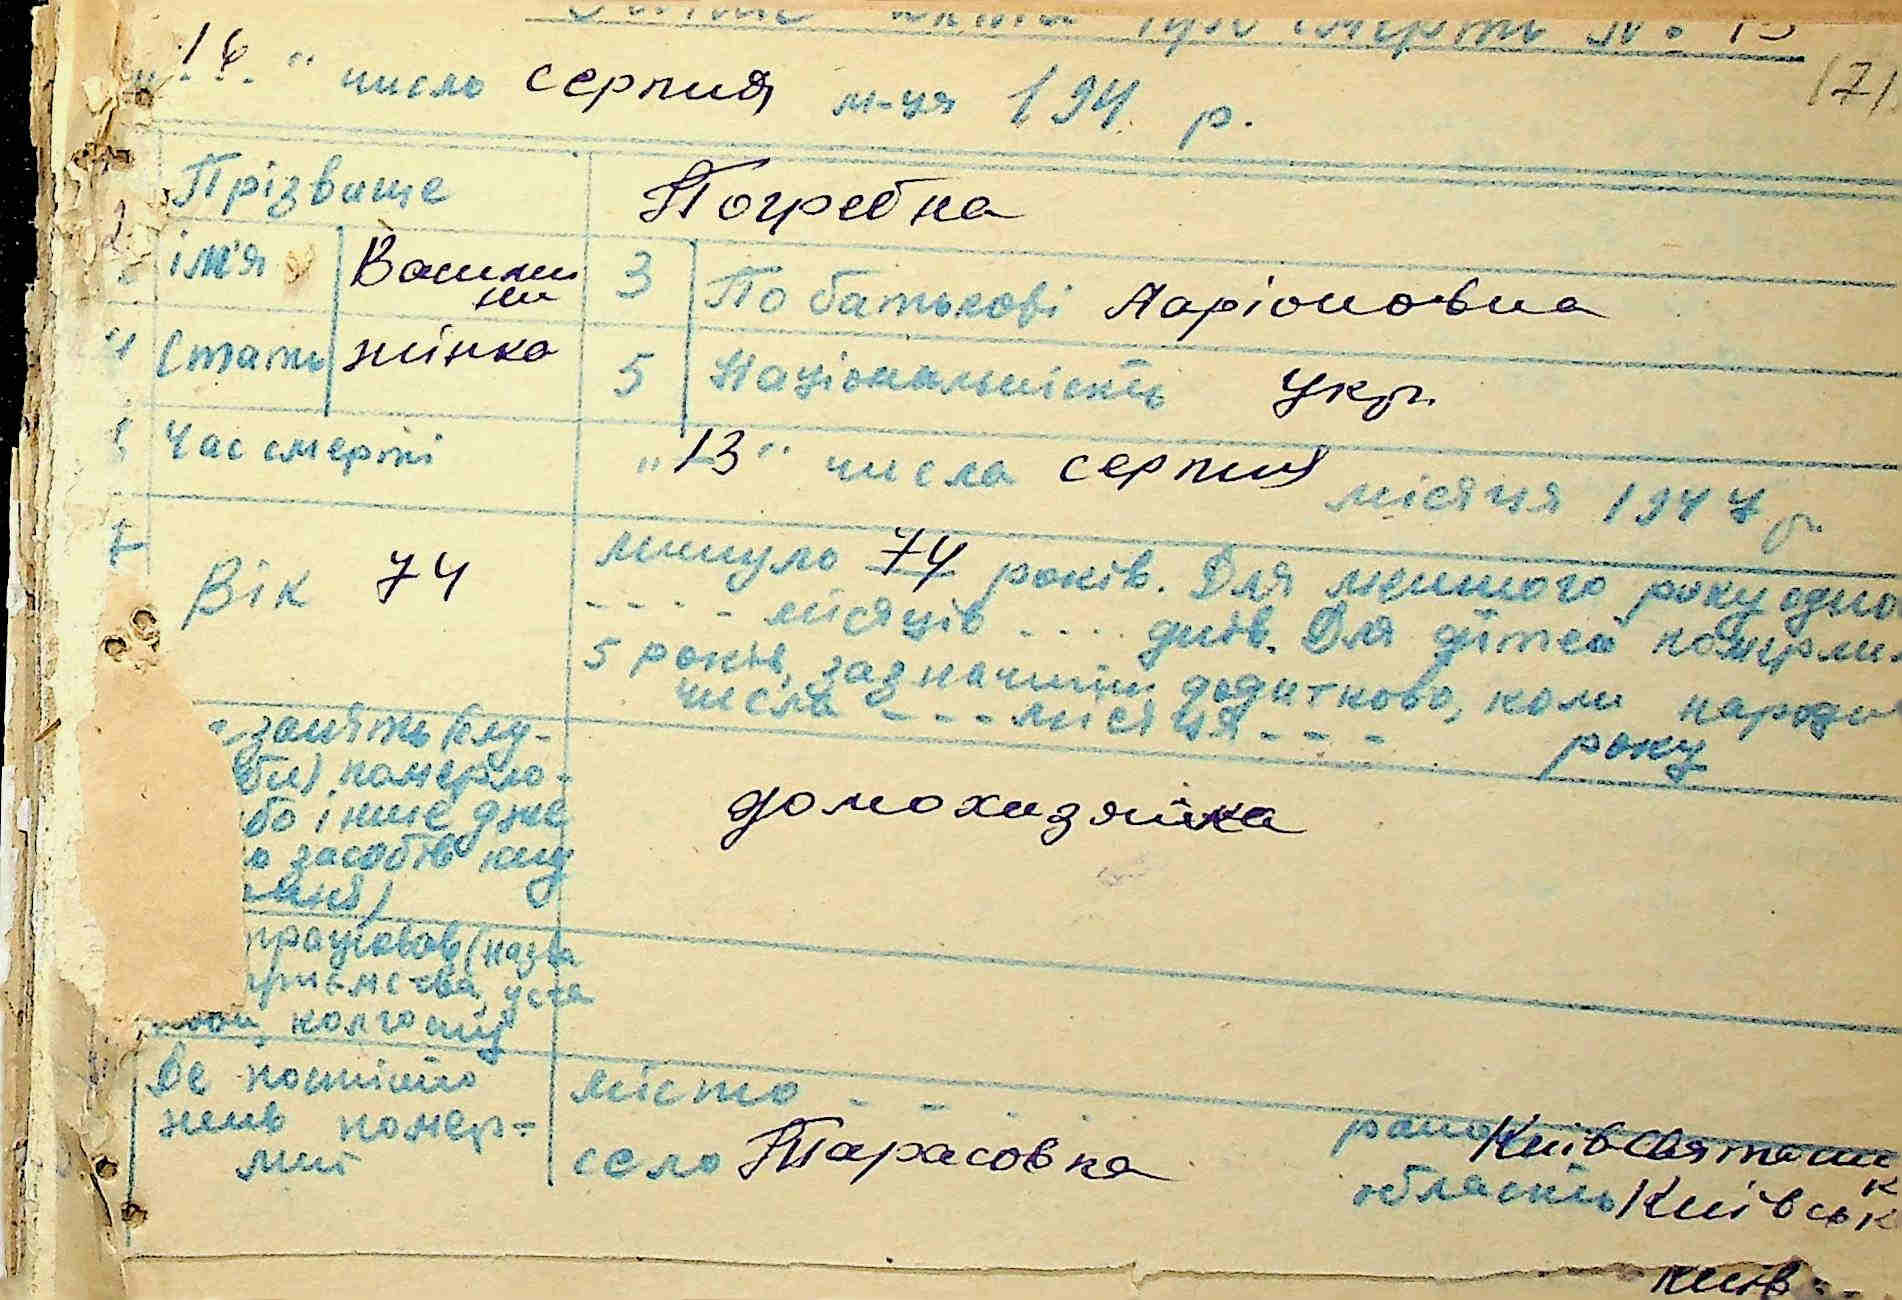 запис акта про смерть № 13
171
"16" число серпня м-ця 194 р.
Прізвище Погребна
2 ім'я Васили
ни
3 По батькові Ларіоновна
4 Стать жінка 5 Національність Укр.
Час смерті "13" числа серпня місяця 1947 р.
7 Вік 74
минуло 74 років. Для меншого року одно
- - - - місяців .... днів. Для дітей померли
5 років, зазначити додатково, коли народи
числа - - - місяця - - - року
занять (слу-
жби) померло-
бо інше дже
засобів існу
вання)
домохизяйка
працював (назва
приємства, уста
колгоспу
Де постійно
жив помер-
лий
місто - - . . .
село Тарасовка
район Київ Святошин
к
область Київськ
Київ